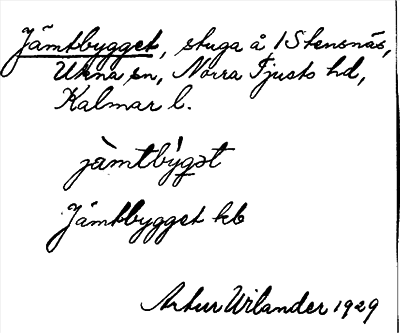 Jämtbygget, stuga å 1 Stensnäs,
Ukna sn, Norra Tjusts hd,
Kalmar l.
jàmtbýgət
Jämtbygget kb
Artur Wilander 1929